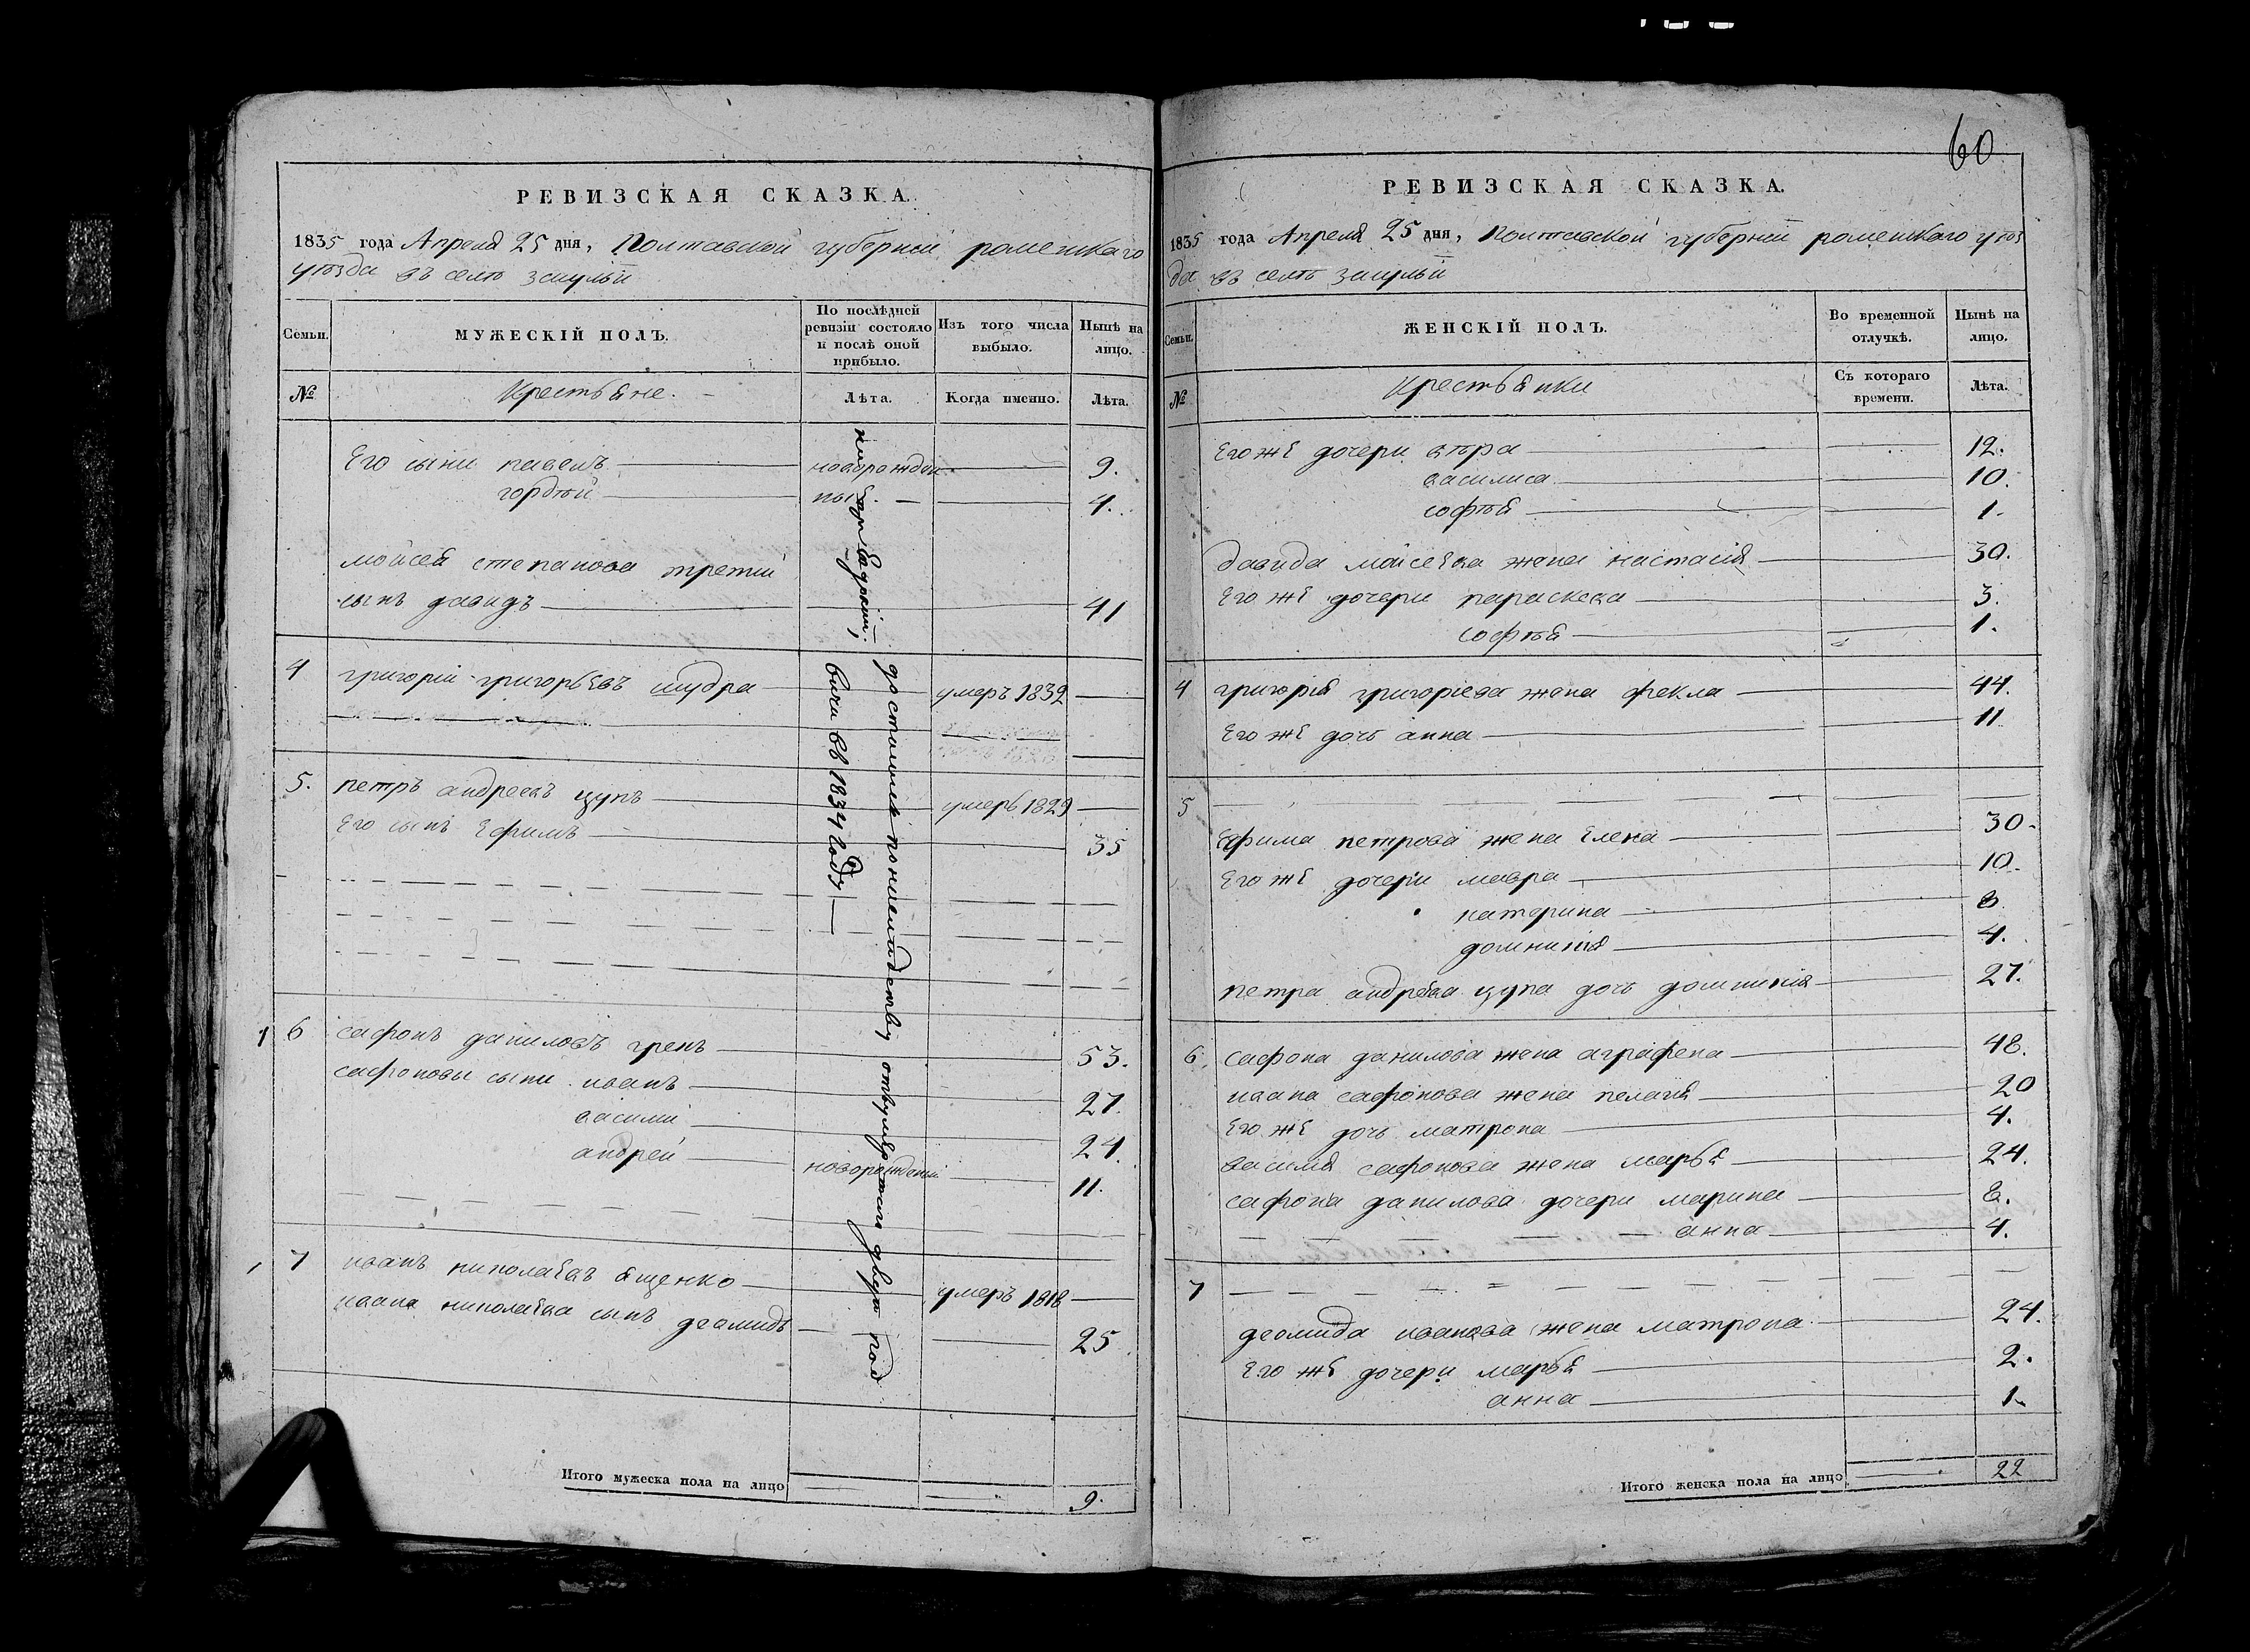 60
РЕВИЗСКАЯ СКАЗКА.
1835 года Апреля 25 дня, Полтавской губерніи роменскаго
уѣзда въ селѣ засульи
Семьи.
МУЖЕСКІЙ ПОЛЪ.
По послѣдней ревизіи состояло и послѣ оной прибыло.
Изъ того числа выбыло.
Нынѣ на лицо.
№
Крестьяне.
Лѣта.
Когда именно.
Лѣта.
Его сыни павелъ новорожден 9.
гордѣй ныя. 4.
мойсея степанова третий
сынъ давидъ 41
4 григорій григорьевъ шудра умеръ 1832
5. петръ андреевъ цупъ умеръ 1829
Его сынъ Ефимъ 35
1 6 сафонъ даниловъ гренъ 53.
сафоновы сыни иванъ 27.
василий 24.
андрей новорожденый 11.
7 иванъ николаевъ ященко умеръ 1818
ивана николаева сынъ деомидъ 25
достались по наследству от
двера под
вичи въ 1834 году
Итого мужеска пола на лицо 9.
РЕВИЗСКАЯ СКАЗКА.
1835 года Апреля 25 дня, Полтавской губерніи роменскаго уѣз
да въ селѣ засульи
Семьи.
ЖЕНСКІЙ ПОЛЪ.
Во временной отлучкѣ.
Нынѣ на лицо.
№
Крестьянки
Съ котораго времени.
Лѣта.
Его же дочери 12.
василиса 10.
софѣя 1.
давида мойсеева жена настасия 30.
Его же дочери параскева 3.
софѣя 1.
4 григорія григоріева жена фекла 44.
Его же дочь анна 11
5
Ефима петрова жена Елена 30.
Его же дочери мавра 10.
катерина 8.
домникия 4.
петра андреева цупа дочь домникия 27.
6 сафона данилова жена аграфена 48.
ивана сафонова жена пелагия 20
Его же дочь матрона 4.
василия сафонова жена марья 24.
сафона данилова дочери марина 8.
анна 4.
7
деомида иванова жена матрона 24.
Его же дочери марья 2.
анна 1.
Итого женска пола на лицо 22